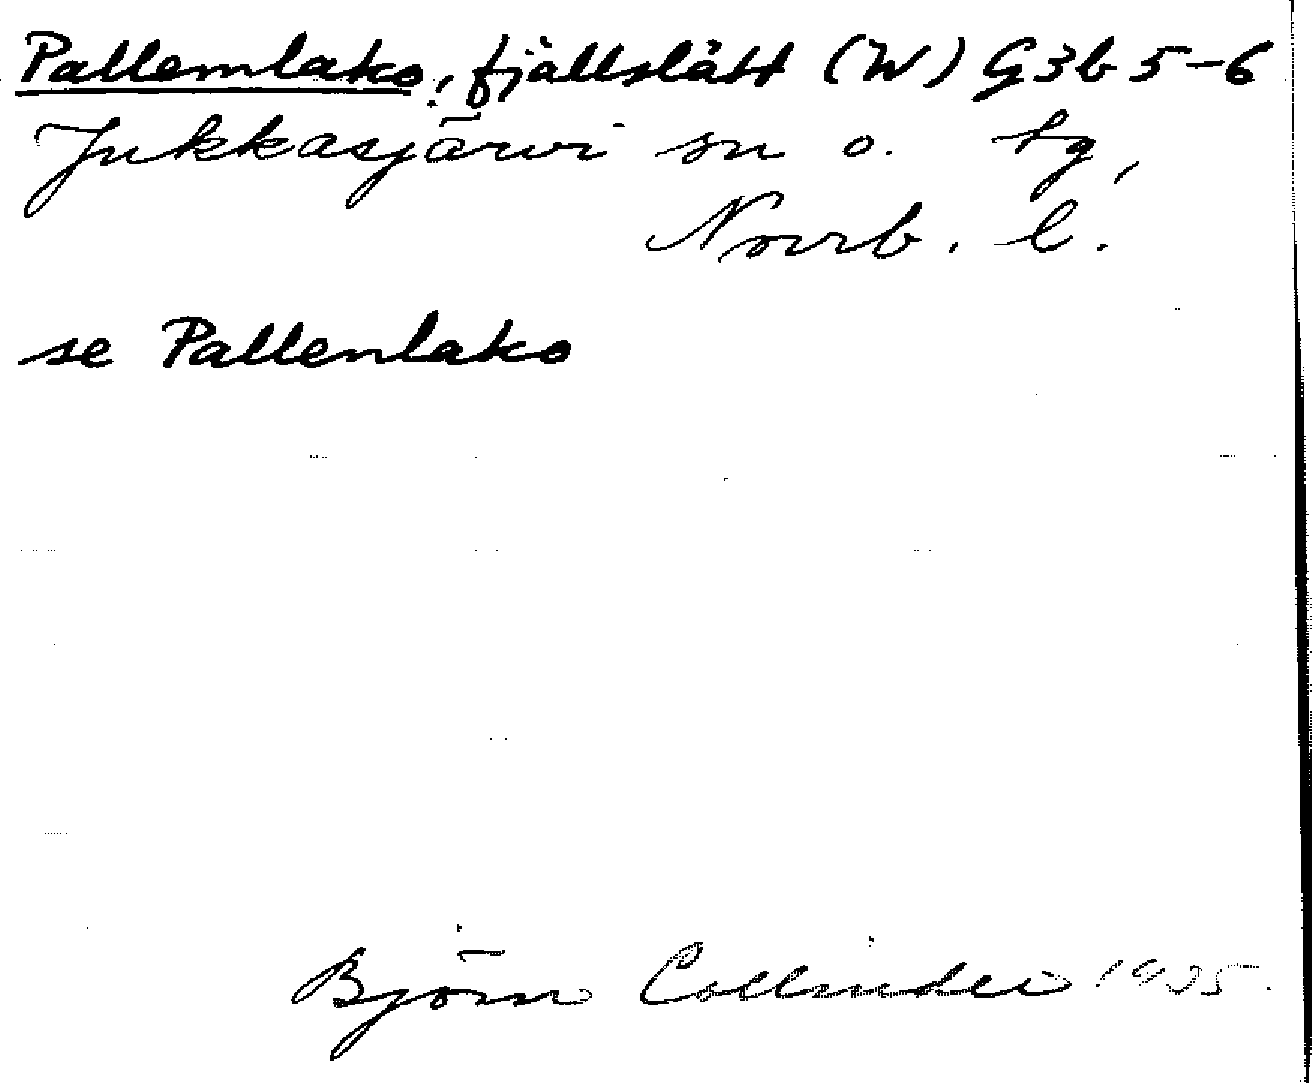 Pallemlako, fjällslätt (W) G3b 5-6
Jukkasjärvi sn o. tg,
Norrb. l.
se Pallenlako
Björn Collinder 1935.